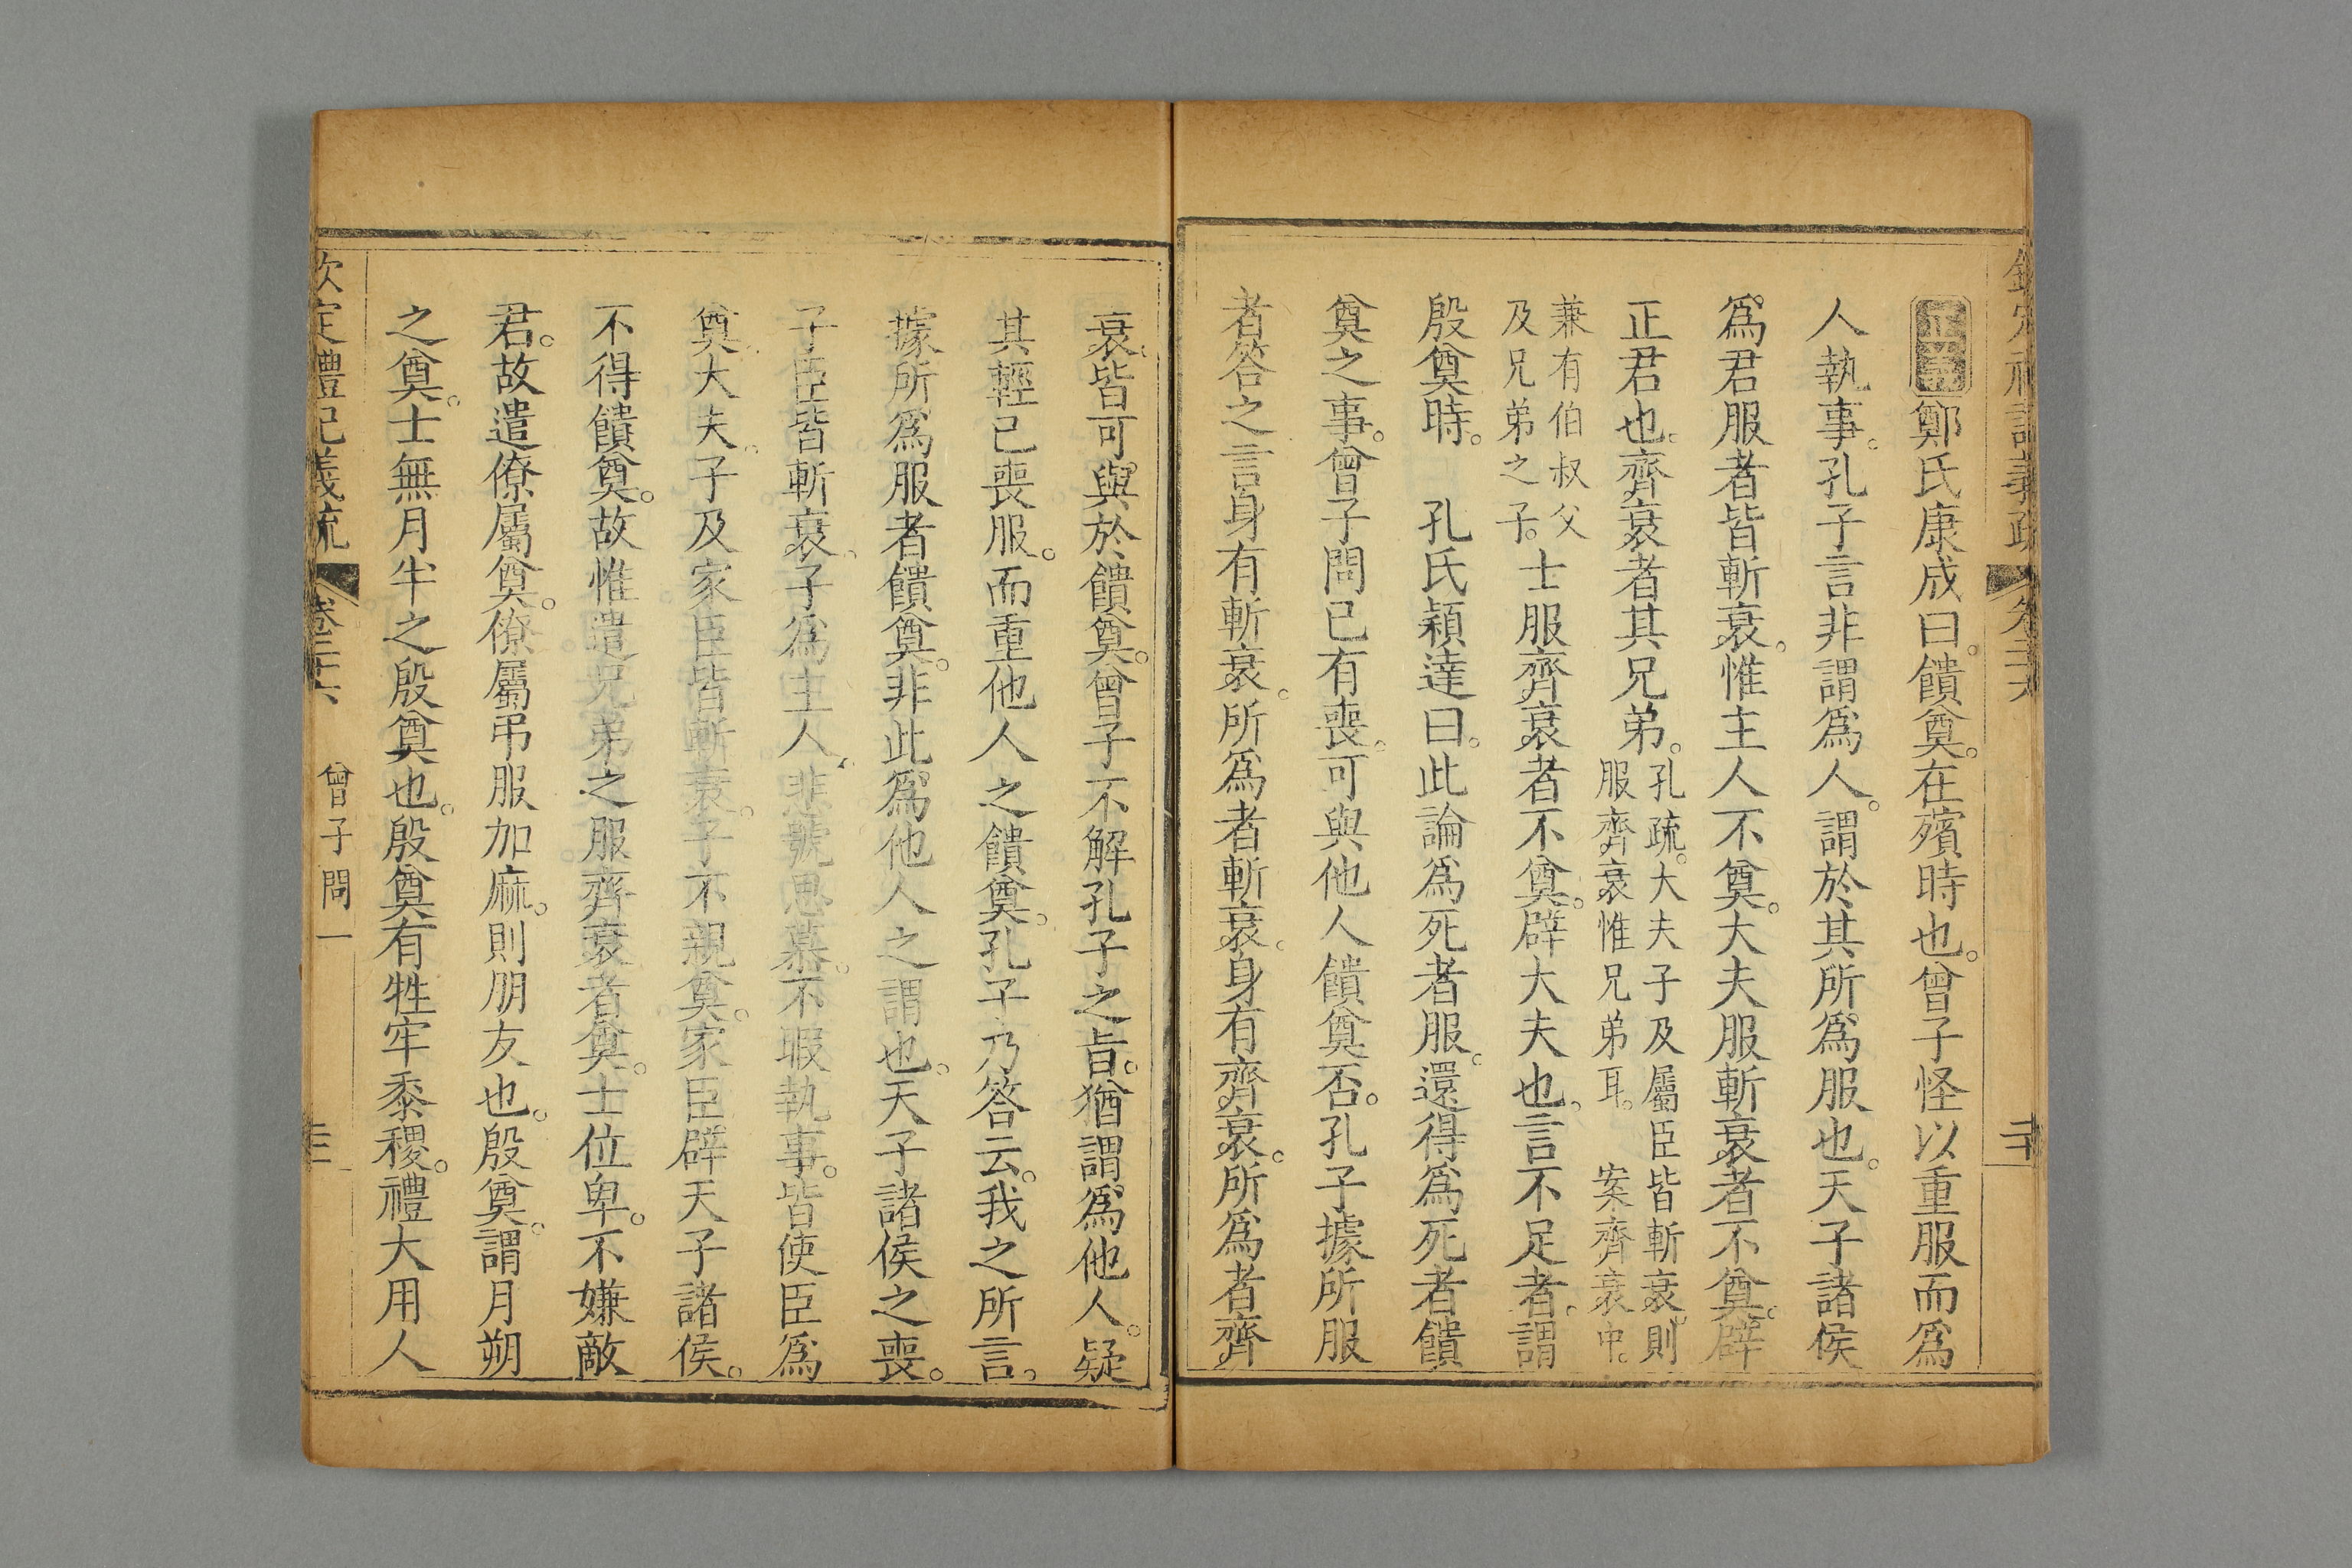 欽定禮記義疏 卷二十六 二十
正義鄭氏康成曰。饋奠。在殯時也。曾子怪以重服而爲
人執事。孔子言非謂爲人。謂於其所爲服也。天子諸侯
爲君服者皆斬衰。惟主人不奠。大夫服斬衰者不奠。辟
正君也。齊衰者其兄弟。孔疏。大夫子及屬臣皆斬衰。則
服齊衰惟兄弟耳。 案齊衰中。
兼有伯叔父
及兄弟之子。士服齊衰者不奠。辟大夫也。言不足者。謂
殷奠時。 孔氏穎達曰。此論爲死者服。還得爲死者饋
奠之事。曾子問已有喪。可與他人饋奠否。孔子據所服
者答之言身有斬衰。所爲者斬衰。身有齊衰。所爲者齊
衰。皆可與於饋奠。曾子不解孔子之旨。猶謂爲他人。疑
其輕已喪服。而重他人之饋奠。孔子乃答云。我之所言。
據所爲服者饋奠。非此爲他人之謂也。天子諸侯之喪。
子臣皆斬衰。子爲主人。悲號思慕。不暇執事。皆使臣爲
奠大夫。子及家臣皆斬衰。子不親奠。家臣辟天子諸侯。
不得饋奠。故惟遣兄弟之服齊衰者奠。士位卑。不嫌敵
君。故遣僚屬奠。僚屬弔服加麻。則朋友也。殷奠。謂月朔
之奠。士無月半之殷奠也。殷奠有牲牢黍稷。禮大用人
欽定禮記義疏 卷二十六 曾子問一